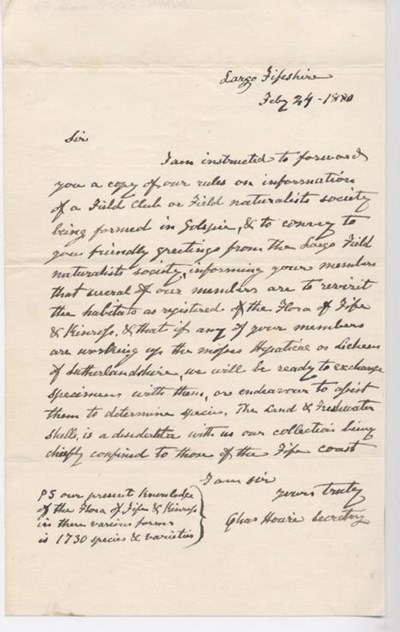 Largo Fifeshire
Feby 24 - 1880
Sir
I am instructed to forward
you a copy of our rules on information
of a Field Club or Field naturalists society
being formed in Golspie, & to convey to
you friendly greetings from the Largo Field
naturalists society, informing your members
that sueral of our members are to revisit
the habitats as registered of the Flora of Fife
& Kinross, & that if any of your members
are working up the mosses Hepaticae or Lichens
of Sutherlandshire, we will be ready to exchange
specimens with them, or endeavour to assist
them to determine species. The Land & Freshwater
shells, is a desiderata with us our collection being
chiefly confined to those of the Fife coast
I am sir
yours truly
Chas Howie Secretary
PS our present knowledge
of the Flora of Fife & Kinross
in there various forms
is 1730 species & varieties